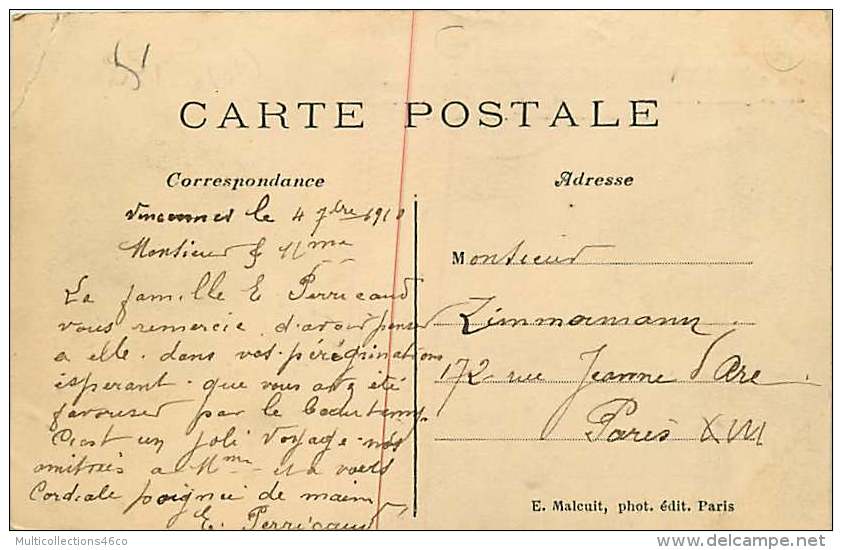 CARTE POSTALE
Correspondance
Vincennes le 4 7bre 1910
Monsieur & Mme
La famille E Perricaud
vous remercie d'avoir penser
a elle dans vos pérégrinations
esperant que vous avez été
favoriser par le beau temps
C'est un joli voyage nos
amitiés a Mme et a vous
Cordiale poignée de main
E. Perricaud
Adresse
Monsieur
Zimmermann
172 rue Jeanne d'Arc
Paris XIII
E. Malcuit, phot. édit. Paris
Multicollections46co
delcampe.net